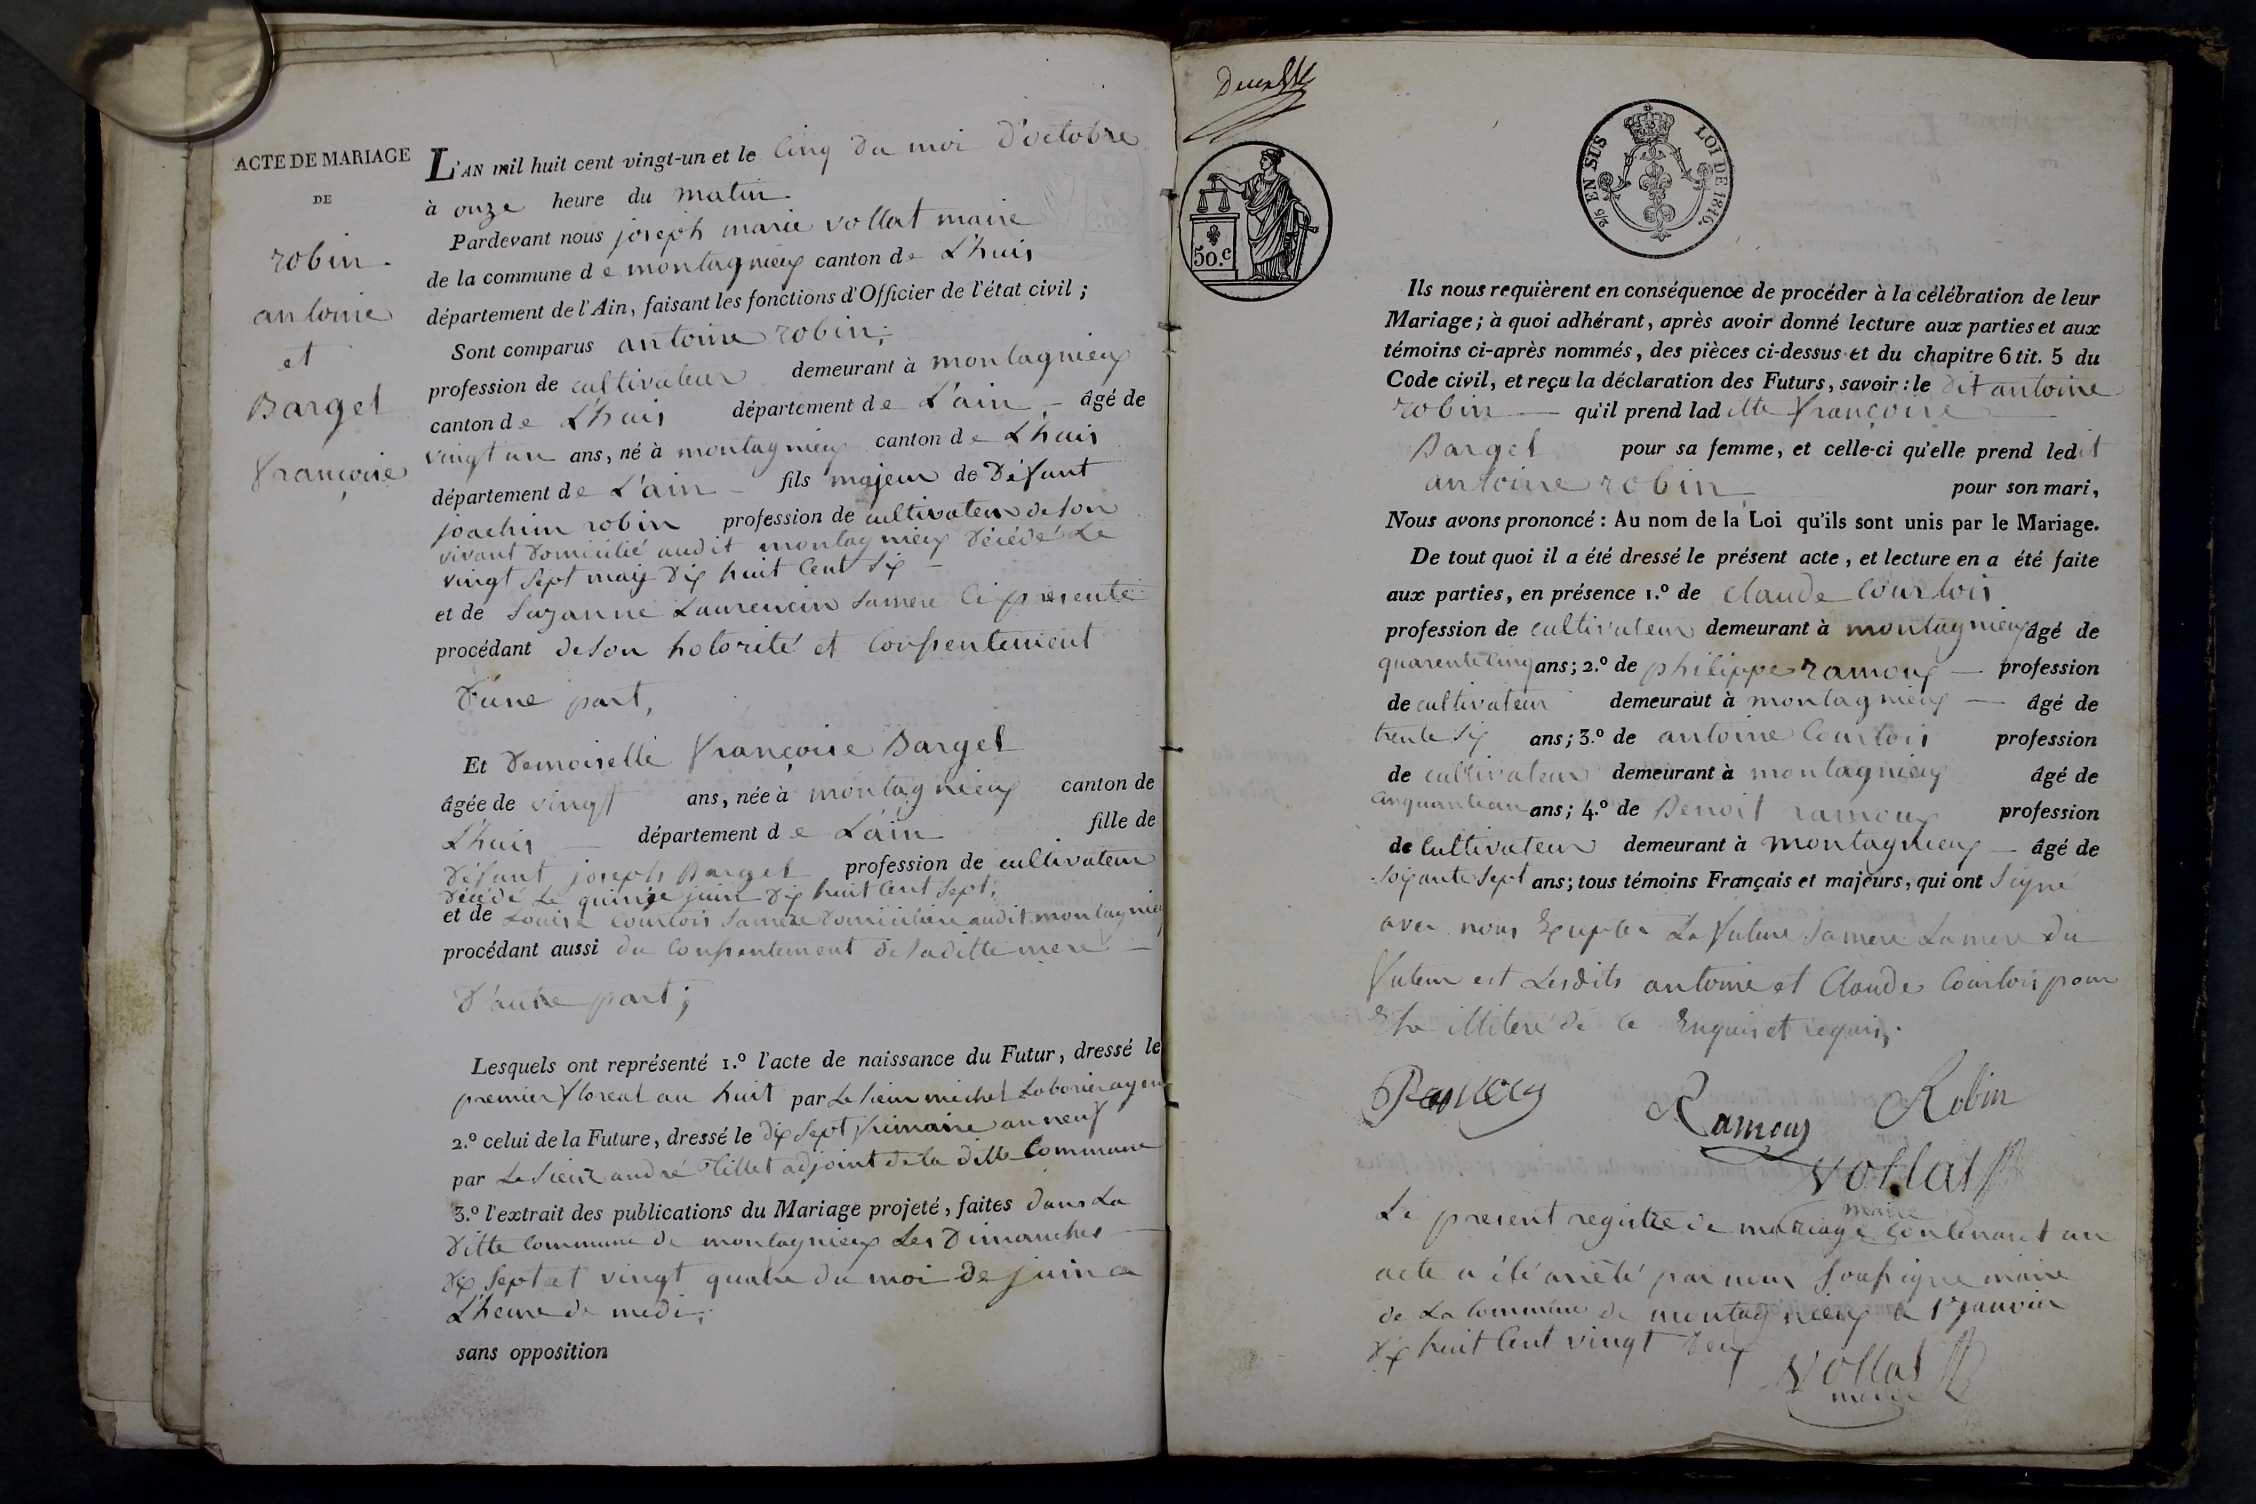 ACTE DE MARIAGE
DE
robin
antoine
et
Bargel
françoise
L'AN mil huit cent vingt-un et le cinq du moi d'octobre
à onze heure du matin
Pardevant nous joseph marie vollat maire
de la commune de montagnieux canton de L'huis
département de l'Ain, faisant les fonctions d'Officier de l'état civil ;
Sont comparus antoine robin,
profession de cultivateur demeurant à montagnieux
canton de L'huis département de L'ain âgé de
vingt un ans, né à montagnieux canton de L'huis
département de L'ain fils majeur de Défunt
joachim robin profession de cultivateur de son
vivant domicilié audit montagnieux décédé Le
vingt sept may dix huit cent six
et de Suzanne Laurencin sa mere ci présente
procédant de son hotorité et consentement
D'une part,
Et Demoiselle françoise Bargel
âgée de vingt ans, née à montagnieux canton de
L'huis département de L'ain fille de
Défunt joseph Bargel profession de cultivateur
Décédé Le quinze juin dix huit cent sept,
et de Louise courtois sa mere domiciliere audit montagnieux
procédant aussi du consentement de saditte mere
D'autre part ;
Lesquels ont représenté 1.º l'acte de naissance du Futur, dressé le
premier floreal an huit par Le sieur michel
2.º celui de la Future, dressé le dix sept frimaire an neuf
par Le sieur andré Tillet adjoint de la ditte Commune
3.º l'extrait des publications du Mariage projeté, faites dans La
ditte commune de montagnieux Les Dimanches
dix sept et vingt quatre du moi de juin a
L'heure de medi,
sans opposition
50.c
2/5 EN SUS LOI DE 1816.
Ils nous requièrent en conséquence de procéder à la célébration de leur
Mariage ; à quoi adhérant, après avoir donné lecture aux parties et aux
témoins ci-après nommés, des pièces ci-dessus et du chapitre 6 tit. 5 du
Code civil, et reçu la déclaration des Futurs, savoir : le dit antoine
robin qu'il prend laditte françoise
Bargel pour sa femme, et celle-ci qu'elle prend ledit
antoine robin pour son mari,
Nous avons prononcé : Au nom de la Loi qu'ils sont unis par le Mariage.
De tout quoi il a été dressé le présent acte, et lecture en a été faite
aux parties, en présence 1.º de claude Courtois
profession de cultivateur demeurant à montagnieux âgé de
quarente cinq ans ; 2.º de philippe ramoux profession
de cultivateur demeurant à montagnieux âgé de
trente six ans ; 3.º de antoine Courtois profession
de cultivateur demeurant à montagnieux âgé de
cinquante un ans ; 4.º de Benoit ramoux profession
de Cultivateur demeurant à montagnieux âgé de
soixante sept ans ; tous témoins Français et majeurs, qui ont signé
avec nous Excepter La future sa mere La mere du
futeur est Lesdits antoine et Claude Courtois pour
Etre illitere de ce Enquis et requis,
Ramoux Robin
Vollat
maire
Le present registre de mariage contenant un
acte a été arrêté par nous soussigne maire
de La Commune de montagnieux a 1er janvier
dix huit Cent vingt deux
Vollat
maire